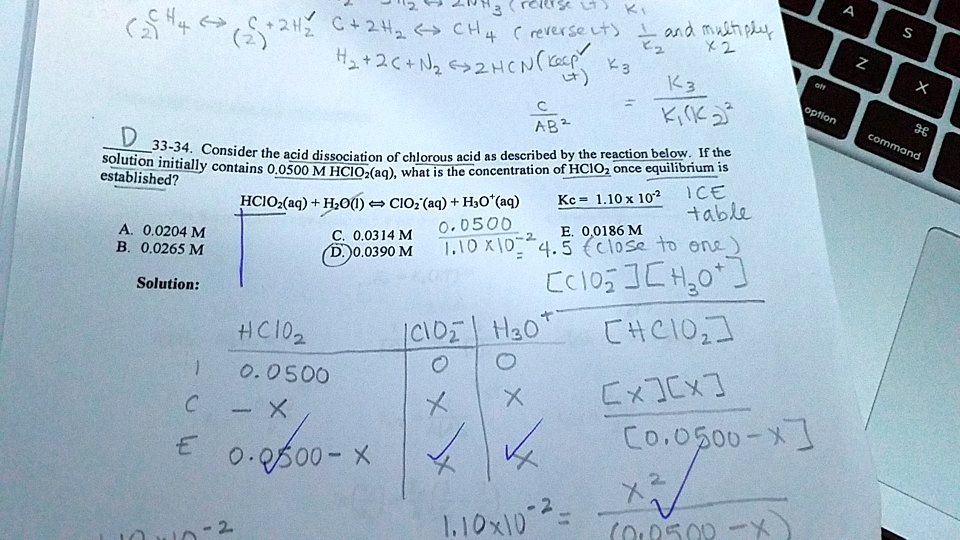 2NH3 (reverse it) K1
(2) CH4 ⇔ (2) C + 2H2 C + 2H2 ⇔ CH4 (reverse it) 1/K2 and multiply x 2
H2 + 2C + N2 ⇔ 2HCN (keep it) K3
C/AB² = K3/K1(K2)²
D 33-34. Consider the acid dissociation of chlorous acid as described by the reaction below. If the
solution initially contains 0.0500 M HClO2(aq), what is the concentration of HClO2 once equilibrium is
established?
HClO2(aq) + H2O(l) ⇔ ClO2⁻(aq) + H3O⁺(aq) Kc = 1.10 x 10⁻² ICE
table
A. 0.0204 M C. 0.0314 M E. 0.0186 M
B. 0.0265 M D. 0.0390 M
0.0500/1.10 x10⁻² = 4.5 (close to one)
Solution:
[ClO2⁻][H3O⁺]
[HClO2]
HClO2 ClO2⁻ H3O⁺
I 0.0500 0 0
C - x x x
E 0.0500 - x x x
[x][x]
[0.0500 - x]
1.10x10⁻² = x²/(0.0500 - x)
A
S
Z
X
alt
option
⌘
command